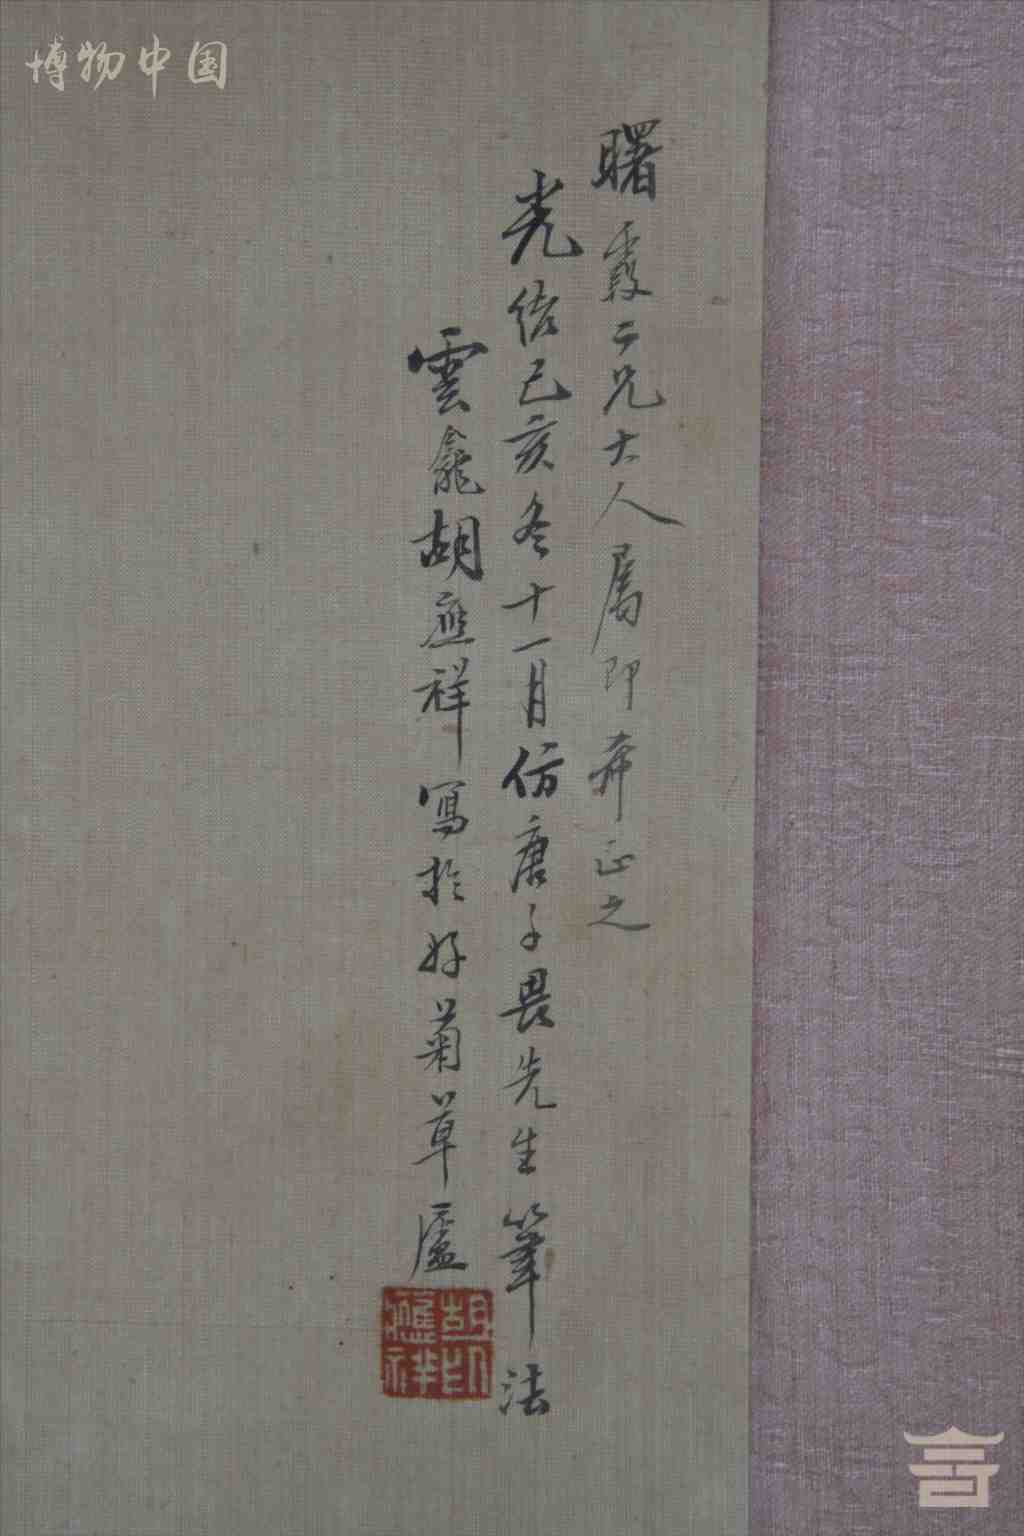 博物中国
曙霞二兄大人属即弆正之
光绪己亥冬十一月仿唐子畏先生筆法
雲龕胡應祥寫於好菊草廬
胡印應祥